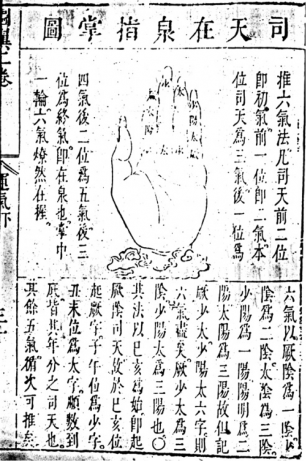 司天在泉指掌圖
推六氣法凡司天前二位
即初氣前一位即二氣本
位司天為三氣後一位為
四氣後二位為五氣後三
位為終氣即在泉也掌中
一輪六氣燎然在握
六氣以厥陰為一陰少
陰為二陰太陰為三陰
少陽為一陽陽明為二
陽太陽為三陽故但記
厥少太少陽太六字則
六氣盡矣厥少太為三
陰少陽太為三陽也〇
其法以巳亥為始即起
厥陰司天故於巳亥位
起厥字子午位為少字
丑未位為太字順數到
底皆其年分之司天也
其餘五氣循次可推矣
圖翼二卷
運氣下